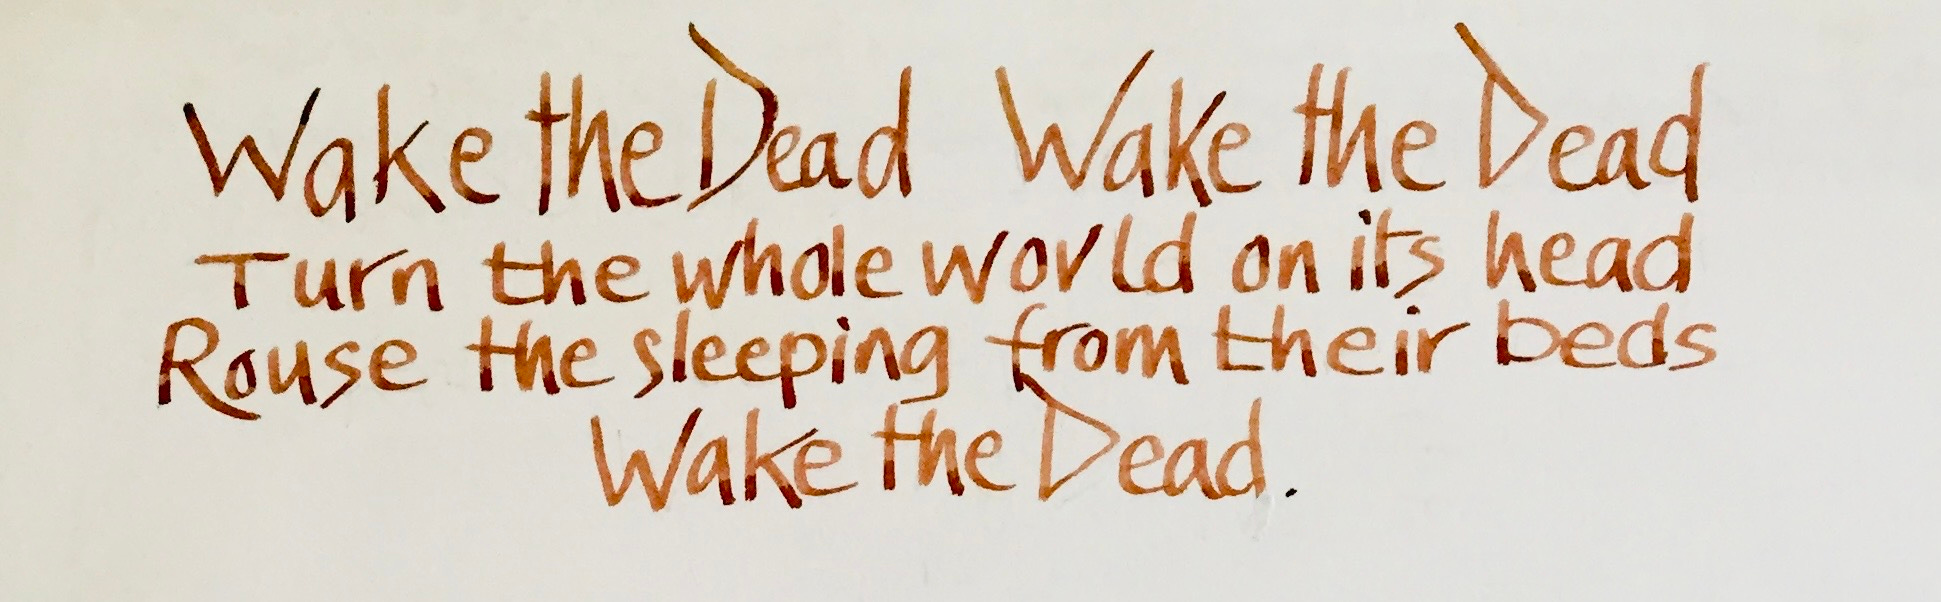 Wake the Dead Wake the Dead
Turn the whole world on its head
Rouse the sleeping from their beds
Wake the Dead.